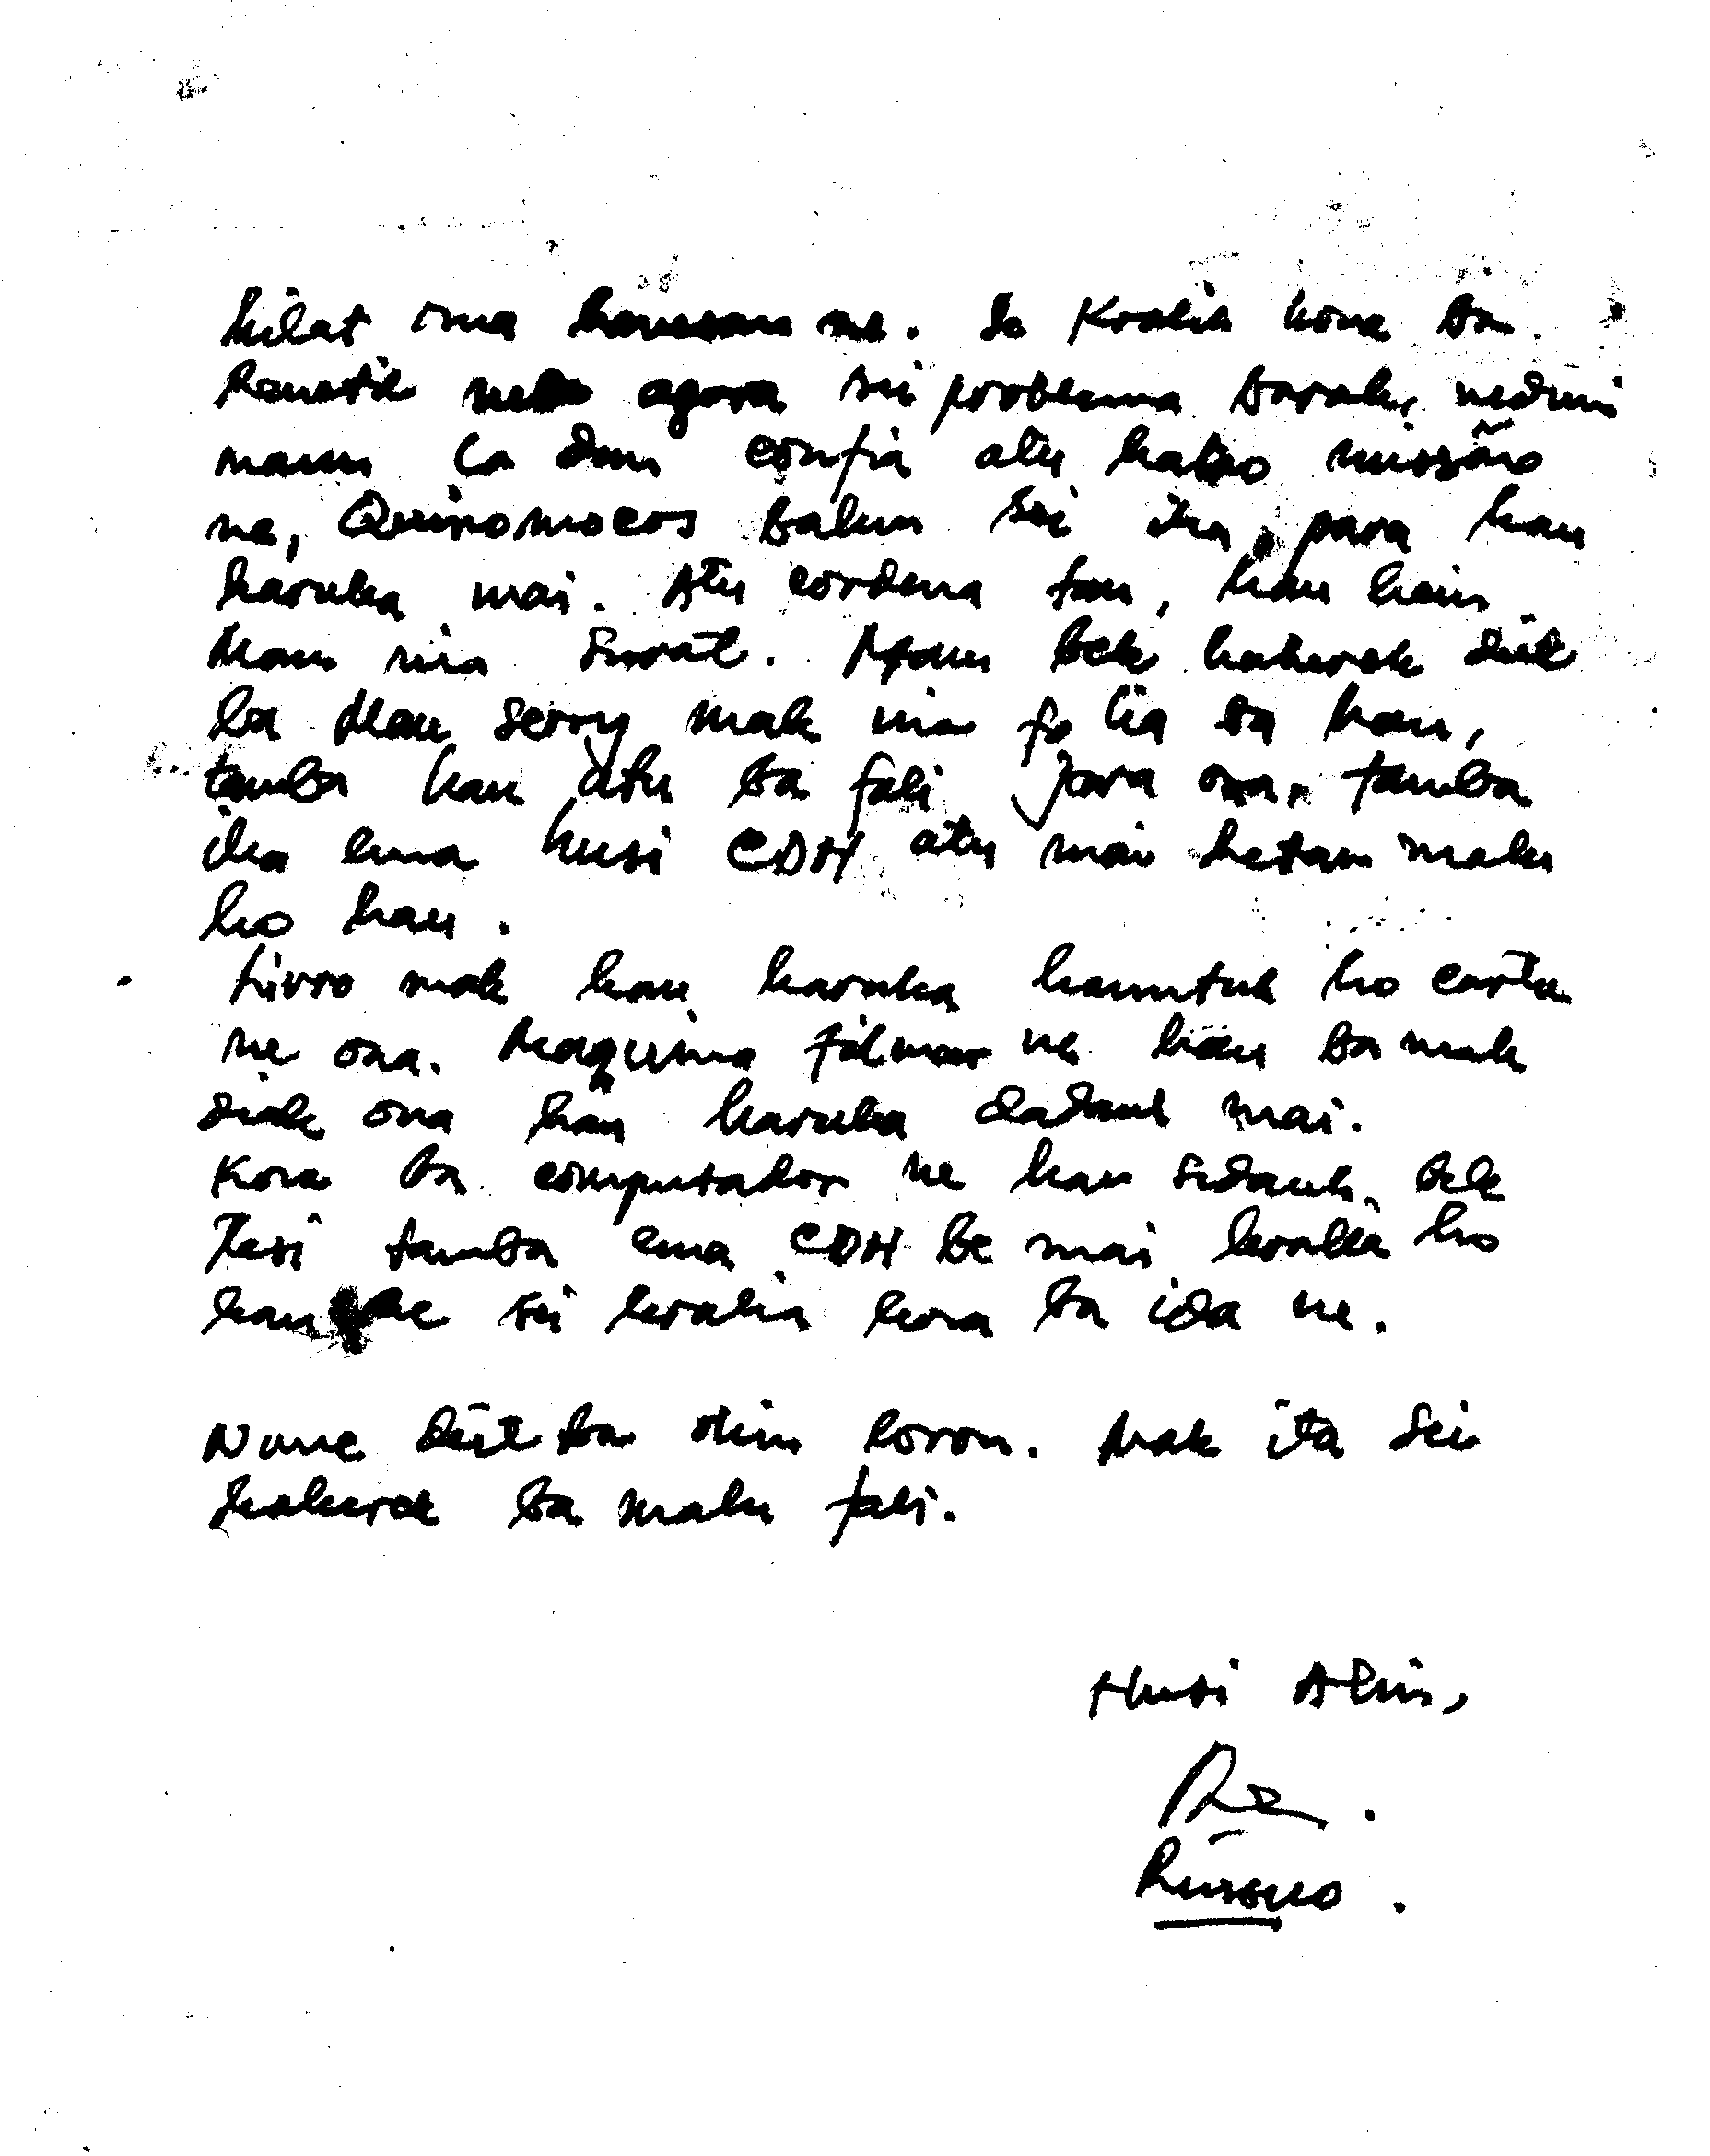 kilat ona ne. Se Kolia kona ba
agora sei problema barak, neduni
maun la dun confia atu halao missão
ne, Quinomocos balun sei iha, para hau
haruka mai. Atu cordena tan, hau hein
Maun nia surat. Maun bele hakerek deit
ba Mau Serry mak nia fo lia ba hau,
tamba hau atu ba fali Java ona, tamba
iha ema husi CDH atu mai hetan malu
ho hau.
Livro mak hau haruka hamutuk ho carta
ne ona. Maquina filmar ne hau ba mak
diak ona hau haruka dadauk mai.
Kona ba computador ne hau sidauk bele
tamba ema CDH be mai kolia ho
hau sei kolia kona ba ida ne.
Nune deit ba ohin loron. Mak ita sei
hakerek ba malu fali.
Husi Alin,